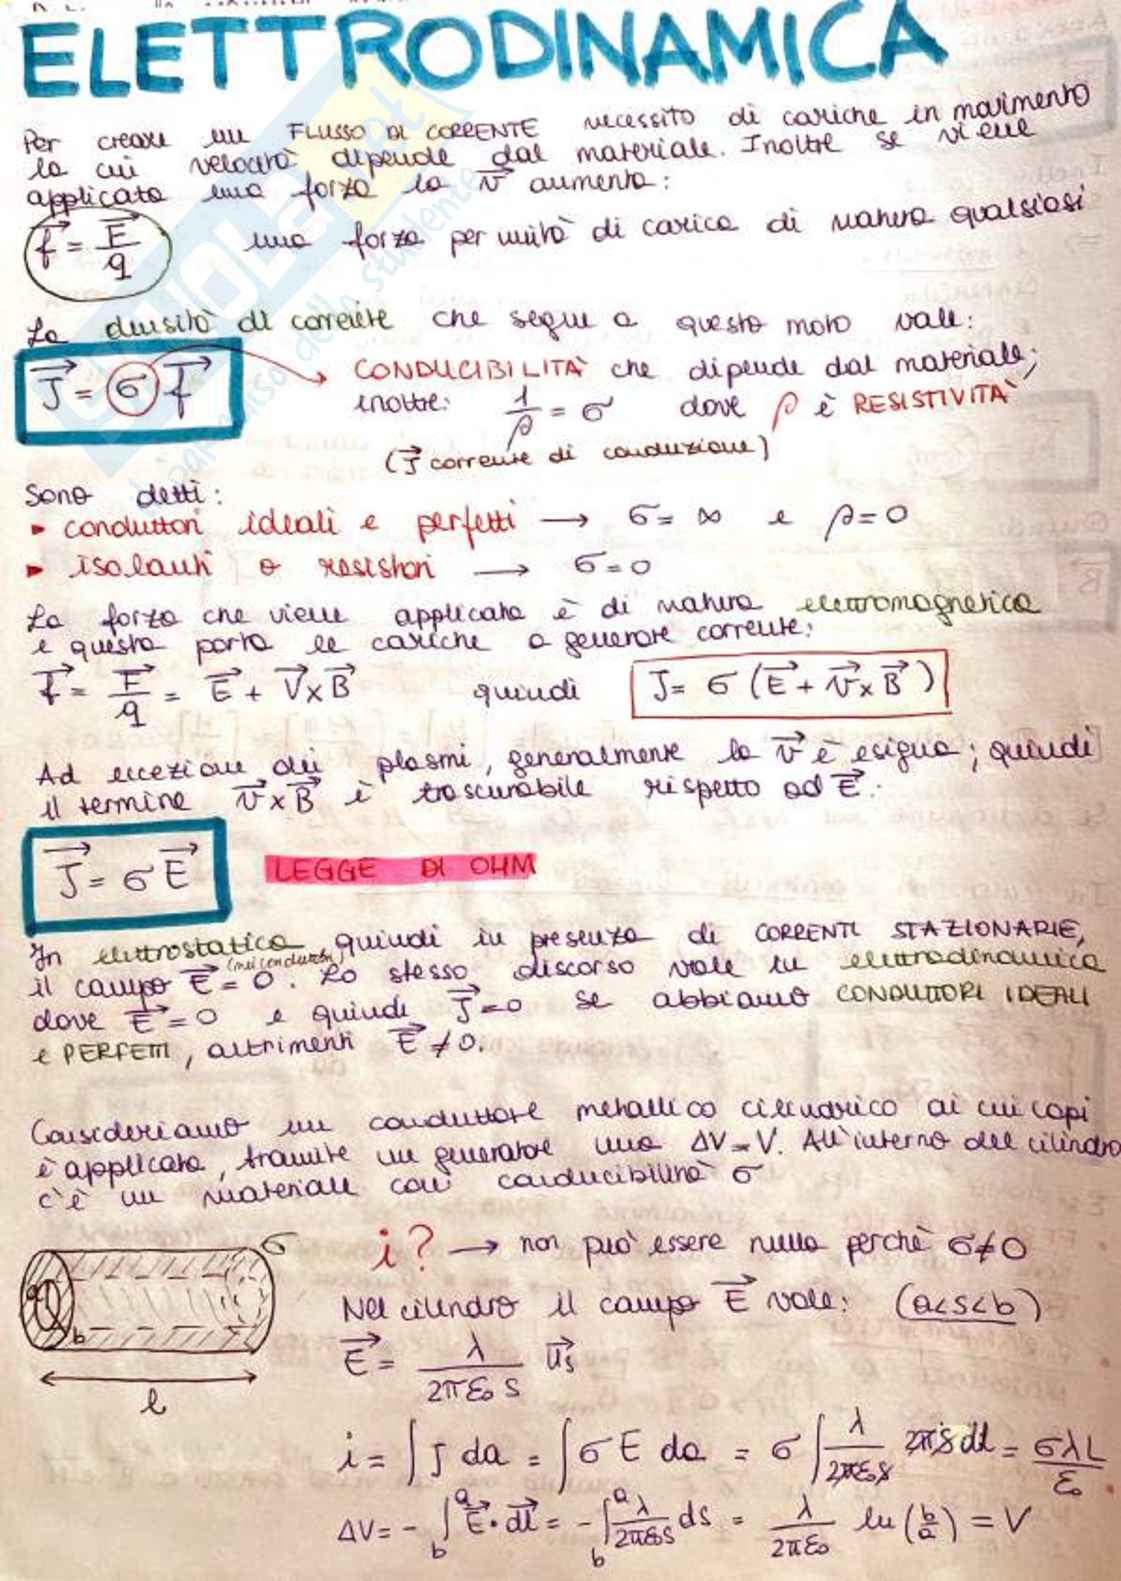 ELETTRODINAMICA
Per creare un FLUSSO DI CORRENTE necessito di cariche in movimento
la cui velocità dipende dal materiale. Inoltre se viene
applicata una forza la v⃗ aumenta:
f⃗ = F⃗/q una forza per unità di carica di natura qualsiasi
La densità di corrente che segue a questo moto vale:
J⃗ = σ f⃗ CONDUCIBILITÀ che dipende dal materiale;
inoltre: 1/ρ = σ dove ρ è RESISTIVITÀ
(J⃗ corrente di conduzione)
Sono detti:
▸ conduttori ideali e perfetti → σ = ∞ e ρ = 0
▸ isolanti o resistori → σ = 0
La forza che viene applicata è di natura elettromagnetica
e questa porta le cariche a generare corrente:
f⃗ = F⃗/q = E⃗ + V⃗ x B⃗ quindi J = σ (E⃗ + v⃗ x B⃗)
Ad eccezione dei plasmi, generalmente la v⃗ è esigua; quindi
il termine v⃗ x B⃗ è trascurabile rispetto ad E⃗.
J⃗ = σ E⃗ LEGGE DI OHM
In elettrostatica, quindi in presenza di CORRENTI STAZIONARIE,
(nei conduttori)
il campo E⃗ = 0. Lo stesso discorso vale in elettrodinamica
dove E⃗ = 0 e quindi J⃗ = 0 se abbiamo CONDUTTORI IDEALI
e PERFETTI, altrimenti E⃗ ≠ 0.
Consideriamo un conduttore metallico cilindrico ai cui capi
è applicata, tramite un generatore una ΔV = V. All'interno del cilindro
c'è un materiale con conducibilità σ
a b σ l
i? → non può essere nulla perchè σ ≠ 0
Nel cilindro il campo E⃗ vale: (a<s<b)
E⃗ = λ/(2πε₀ s) u⃗s
i = ∫ J da = ∫ σ E da = σ ∫ λ/(2πε₀s) 2πs dl = σλL/ε₀
ΔV = - ∫_b^a E⃗ · dl⃗ = - ∫_b^a λ/(2πε₀s) ds = λ/(2πε₀) ln(b/a) = V